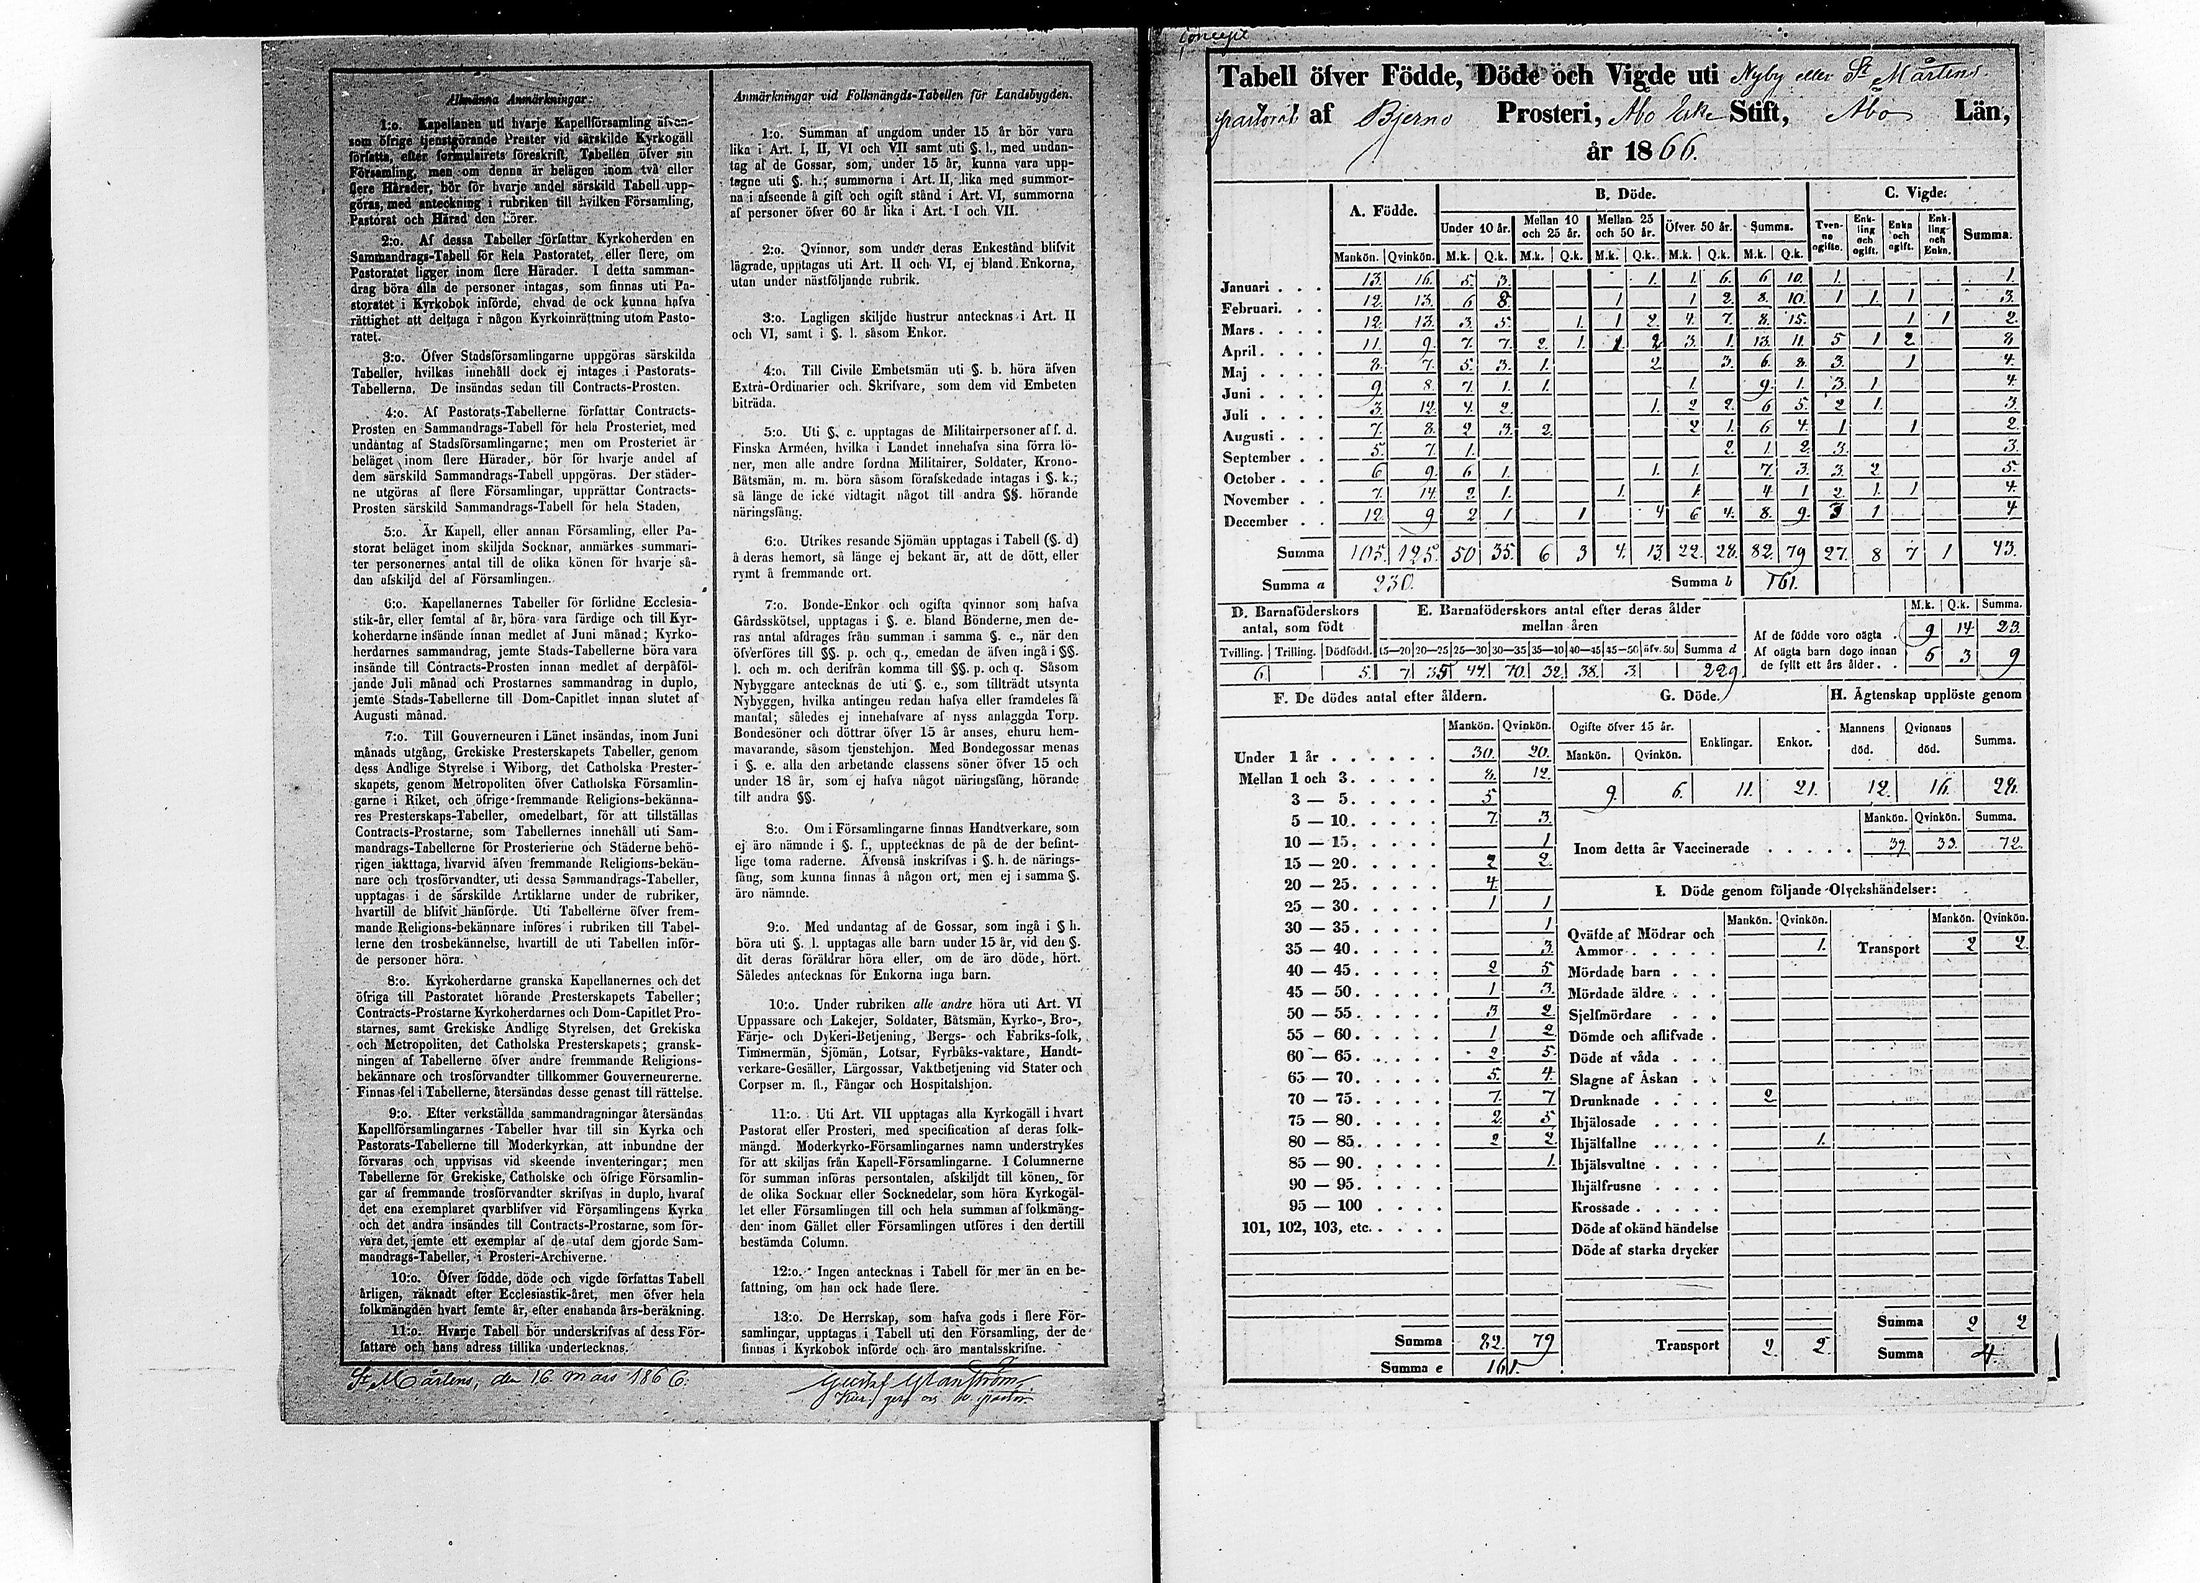 Allmänna Anmärkningar.
1:o. Kapellanen uti hvarje Kapellförsamling äfven-
som öfrige tjenstgörande Prester vid särskilde Kyrkogäll
författa, efter formulairets föreskrift, Tabellen öfver sin
Församling, men om denna är belägen inom två eller
flere Härader, bör för hvarje andel särskild Tabell upp-
göras, med anteckning i rubriken till hvilken Församling,
Pastorat och Härad den hörer.
2:o. Af dessa Tabeller författar Kyrkoherden en
Sammandrags-Tabell för hela Pastoratet, eller flere, om
Pastoratet ligger inom flere Härader. I detta samman-
drag böra alla de personer intagas, som finnas uti Pa-
storatet i Kyrkobok införde, ehvad de ock kunna hafva
rättighet att deltaga i någon Kyrkoinrättning utom Pasto-
ratet.
3:o. Öfver Stadsförsamlingarne uppgöras särskilda
Tabeller, hvilkas innehåll dock ej intages i Pastorats-
Tabellerna. De insändas sedan till Contracts-Prosten.
4:o. Af Pastorats-Tabellerne författar Contracts-
Prosten en Sammandrags-Tabell för hela Prosteriet, med
undantag af Stadsförsamlingarne; men om Prosteriet är
beläget inom flere Härader, bör för hvarje andel af
dem särskild Sammandrags-Tabell uppgöras. Der städer-
ne utgöras af flere Församlingar, upprättar Contracts-
Prosten särskild Sammandrags-Tabell för hela Staden.
5:o. Är Kapell, eller annan Församling, eller Pa-
storat beläget inom skiljda Socknar, anmärkes summari-
ter personernes antal till de olika könen för hvarje så-
dan afskiljd del af Församlingen.
6:o. Kapellanernes Tabeller för förlidne Ecclesia-
stik-år, eller femtal af år, böra vara färdige och till Kyr-
koherdarne insände innan medlet af Juni månad; Kyrko-
herdarnes sammandrag, jemte Stads-Tabellerne böra vara
insände till Contracts-Prosten innan medlet af derpåföl-
jande Juli månad och Prostarnes sammandrag in duplo,
jemte Stads-Tabellerne till Dom-Capitlet innan slutet af
Augusti månad.
7:o. Till Gouverneuren i Länet insändas, inom Juni
månads utgång, Grekiske Presterskapets Tabeller, genom
dess Andlige Styrelse i Wiborg, det Catholska Prester-
skapets, genom Metropoliten öfver Catholska Församlin-
garne i Riket, och öfrige fremmande Religions-bekänna-
res Presterskaps-Tabeller, omedelbart, för att tillställas
Contracts-Prostarne, som Tabellernes innehåll uti Sam-
mandrags-Tabellerne för Prosterierne och Städerne behö-
rigen iakttaga, hvarvid äfven fremmande Religions-bekän-
nare och trosförvandter, uti dessa Sammandrags-Tabeller,
upptagas i de särskilde Artiklarne under de rubriker,
hvartill de blifvit hänförde. Uti Tabellerne öfver frem-
mande Religions-bekännare införes i rubriken till Tabel-
lerne den trosbekännelse, hvartill de uti Tabellen inför-
de personer höra.
8:o. Kyrkoherdarne granska Kapellanernes och det
öfriga till Pastoratet hörande Presterskapets Tabeller;
Contracts-Prostarne Kyrkoherdarnes och Dom-Capitlet Pro-
starnes, samt Grekiske Andlige Styrelsen, det Grekiska
och Metropoliten, det Catholska Presterskapets; gransk-
ningen af Tabellerne öfver andre fremmande Religions-
bekännare och trosförvandter tillkommer Gouverneurerne.
Finnas fel i Tabellerne, återsändas desse genast till rättelse.
9:o. Efter verkställda sammandragningar återsändas
Kapellförsamlingarnes Tabeller hvar till sin Kyrka och
Pastorats-Tabellerne till Moderkyrkan, att inbundne der
förvaras och uppvisas vid skeende inventeringar; men
Tabellerne för Grekiske, Catholske och öfrige Församlin-
gar af fremmande trosförvandter skrifvas in duplo, hvaraf
det ena exemplaret qvarblifver vid Församlingens Kyrka
och det andra insändes till Contracts-Prostarne, som för-
vara det, jemte ett exemplar af de utaf dem gjorde Sam-
mandrags-Tabeller, i Prosteri-Archiverne.
10:o. Öfver födde, döde och vigde författas Tabell
årligen, räknadt efter Ecclesiastik-året, men öfver hela
folkmängden hvart femte år, efter enahanda års-beräkning.
11:o. Hvarje Tabell bör underskrifvas af dess För-
fattare och hans adress tillika undertecknas.
Anmärkningar vid Folkmängds-Tabellen för Landsbygden.
1:o. Summan af ungdom under 15 år bör vara
lika i Art. I, II, VI och VII samt uti §. l., med undan-
tag af de Gossar, som, under 15 år, kunna vara upp-
tagne uti §. h.; summorna i Art. II, lika med summor-
na i afseende å gift och ogift stånd i Art. VI, summorna
af personer öfver 60 år lika i Art. I och VII.
2:o. Qvinnor, som under deras Enkestånd blifvit
lägrade, upptagas uti Art. II och VI, ej bland Enkorna,
utan under nästföljande rubrik.
3:o. Lagligen skiljde hustrur antecknas i Art. II
och VI, samt i §. l. såsom Enkor.
4:o. Till Civile Embetsmän uti §. b. höra äfven
Extra-Ordinarier och Skrifvare, som dem vid Embeten
biträda.
5:o. Uti §. c. upptagas de Militairpersoner af f. d.
Finska Arméen, hvilka i Landet innehafva sina förra lö-
ner, men alle andre fordna Militairer, Soldater, Krono-
Båtsmän, m. m. böra såsom förafskedade intagas i §. k.;
så länge de icke vidtagit något till andra §§. hörande
näringsfång.
6:o. Utrikes resande Sjömän upptagas i Tabell (§. d)
å deras hemort, så länge ej bekant är, att de dött, eller
rymt å fremmande ort.
7:o. Bonde-Enkor och ogifta qvinnor som hafva
Gårdsskötsel, upptagas i §. e. bland Bönderne, men de-
ras antal afdrages från summan i samma §. e., när den
öfverföres till §§. p. och q., emedan de äfven ingå i §§.
l. och m. och derifrån komma till §§. p. och q. Såsom
Nybyggare antecknas de uti §. e., som tillträdt utsynta
Nybyggen, hvilka antingen redan hafva eller framdeles få
mantal; således ej innehafvare af nyss anlaggda Torp.
Bondesöner och döttrar öfver 15 år anses, ehuru hem-
mavarande, såsom tjenstehjon. Med Bondegossar menas
i §. e. alla den arbetande classens söner öfver 15 och
under 18 år, som ej hafva något näringsfång, hörande
till andra §§.
8:o. Om i Församlingarne finnas Handtverkare, som
ej äro nämnde i §. f., upptecknas de på de der befint-
lige toma raderne. Äfvenså inskrifvas i §. h. de närings-
fång, som kunna finnas å någon ort, men ej i samma §.
äro nämnde.
9:o. Med undantag af de Gossar, som ingå i § h.
böra uti §. l. upptagas alle barn under 15 år, vid den §.
dit deras föräldrar höra eller, om de äro döde, hört.
Således antecknas för Enkorna inga barn.
10:o. Under rubriken alle andre höra uti Art. VI
Uppassare och Lakejer, Soldater, Båtsmän, Kyrko-, Bro-,
Färje- och Dykeri-Betjening, Bergs- och Fabriks-folk,
Timmermän, Sjömän, Lotsar, Fyrbåks-vaktare, Handt-
verkare-Gesäller, Lärgossar, Vaktbetjening vid Stater och
Corpser m. fl., Fångar och Hospitalshjon.
11:o. Uti Art. VII upptagas alla Kyrkogäll i hvart
Pastorat eller Prosteri, med specification af deras folk-
mängd. Moderkyrko-Församlingarnes namn understrykes
för att skiljas från Kapell-Församlingarne. I Columnerne
för summan införas persontalen, afskiljdt till könen, för
de olika Socknar eller Socknedelar, som höra Kyrkogäl-
let eller Församlingen till och hela summan af folkmäng-
den inom Gället eller Församlingen utföres i den dertill
bestämda Column.
12:o. Ingen antecknas i Tabell för mer än en be-
fattning, om han ock hade flere.
13:o. De Herrskap, som hafva gods i flere För-
samlingar, upptagas i Tabell uti den Församling, der de
finnas i Kyrkobok införde och äro mantalsskrifne.
St Mårtens, den 16 mars 1866.
Concept
Tabell öfver Födde, Döde och Vigde uti Nyby eller St Mårtens
pastorat af Bjerno Prosteri, Åbo Erke Stift, Åbo Län,
år 1866.
A. Födde. B. Döde. C. Vigde.
Under 10 år. Mellan 10 och 25 år. Mellan 25 och 50 år. Öfver 50 år. Summa. Tvenne ogifte. Enkling och ogift. Enka och ogift. Enkling och Enka. Summa.
Mankön. Qvinkön. M.k. Q.k. M.k. Q.k. M.k. Q.k. M.k. Q.k. M.k. Q.k.
Januari . . . 13. 16. 5. 3. 1. 1. 6. 6 10. 1. 1.
Februari. . . 12. 13. 6 8. 1 1 2. 8. 10. 1 1. 1 3.
Mars . . . . 12. 13. 3. 5. 1. 1 2. 4. 7. 8. 15. 1 1 2.
April . . . . 11. 9. 7. 7. 2. 1. 1 2 3. 1. 13. 11. 5 1 2 8
Maj . . . . 8. 7. 5. 3. 1. 2. 3. 6. 8. 3. 1 4.
Juni . . . . 9. 8. 7. 1. 1. 1. 9. 1. 3. 1 4.
Juli . . . . 3. 12. 4. 2. 1. 2 2. 6 5. 2 1. 3.
Augusti . . . 7. 8. 2 3. 2. 2 1. 6 4. 1 1 2.
September . . 5. 7. 1. 2. 1. 2. 3. 3.
October . . . 6 9. 6 1. 1. 1. 7. 3. 3. 2 5.
November . . 7. 14. 2. 1. 1. 1. 4 1 2. 1. 1 4.
December . . 12. 9 2 1 1 4 6 4. 8. 9. 3 1 4
Summa 105. 125. 50 35. 6 3 4. 13. 22. 28. 82. 79 27. 8 7 1 43.
Summa a 230. Summa b 161.
D. Barnaföderskors antal, som födt E. Barnaföderskors antal efter deras ålder mellan åren
Tvilling. Trilling. Dödfödd. 15—20 20—25 25—30 30—35 35—40 40—45 45—50 öfv. 50 Summa d
6 5. 7. 35 44. 70. 32. 38. 3. 229
M.k. Q.k. Summa.
Af de födde voro oägta . 9 14. 23.
Af oägta barn dogo innan de fyllt ett års ålder. . 6 3 9
F. De dödes antal efter åldern.
Mankön. Qvinkön.
Under 1 år . . . . . . 30. 20.
Mellan 1 och 3. . . . . 8. 12.
3 — 5. . . . . 5
5 — 10. . . . . 7. 3.
10 — 15. . . . . 1
15 — 20. . . . . 2 2.
20 — 25. . . . . 4.
25 — 30. . . . . 1 1
30 — 35. . . . . 1
35 — 40. . . . . 3.
40 — 45. . . . . 2 5
45 — 50. . . . . 1 3.
50 — 55. . . . . 3 2.
55 — 60. . . . . 1 2
60 — 65. . . . . 2 5.
65 — 70. . . . . 5. 4.
70 — 75. . . . . 7. 7
75 — 80. . . . . 2. 5
80 — 85. . . . . 2 2.
85 — 90. . . . . 1.
90 — 95. . . . .
95 — 100 . . . .
101, 102, 103, etc. . . . .
Summa 82. 79
Summa e 161.
G. Döde.
Ogifte öfver 15 år. Enklingar. Enkor.
Mankön. Qvinkön.
9. 6. 11. 21.
H. Ägtenskap upplöste genom
Mannens död. Qvinnans död. Summa.
12. 16. 28.
Mankön. Qvinkön. Summa.
Inom detta år Vaccinerade . . . . . 39. 33. 72.
I. Döde genom följande Olyckshändelser:
Mankön. Qvinkön. Mankön. Qvinkön.
Qväfde af Mödrar och Ammor . . . . . 1. Transport 2 2.
Mördade barn . . .
Mördade äldre. . . .
Sjelfmördare . . .
Dömde och aflifvade .
Döde af våda . . .
Slagne af Åskan . .
Drunknade . . . . 2
Ihjälosade . . . .
Ihjälfallne . . . . 1.
Ihjälsvultne . . . .
Ihjälfrusne . . . .
Krossade . . . . .
Döde af okänd händelse
Döde af starka drycker
Summa 2 2
Transport 2. 2. Summa 4.